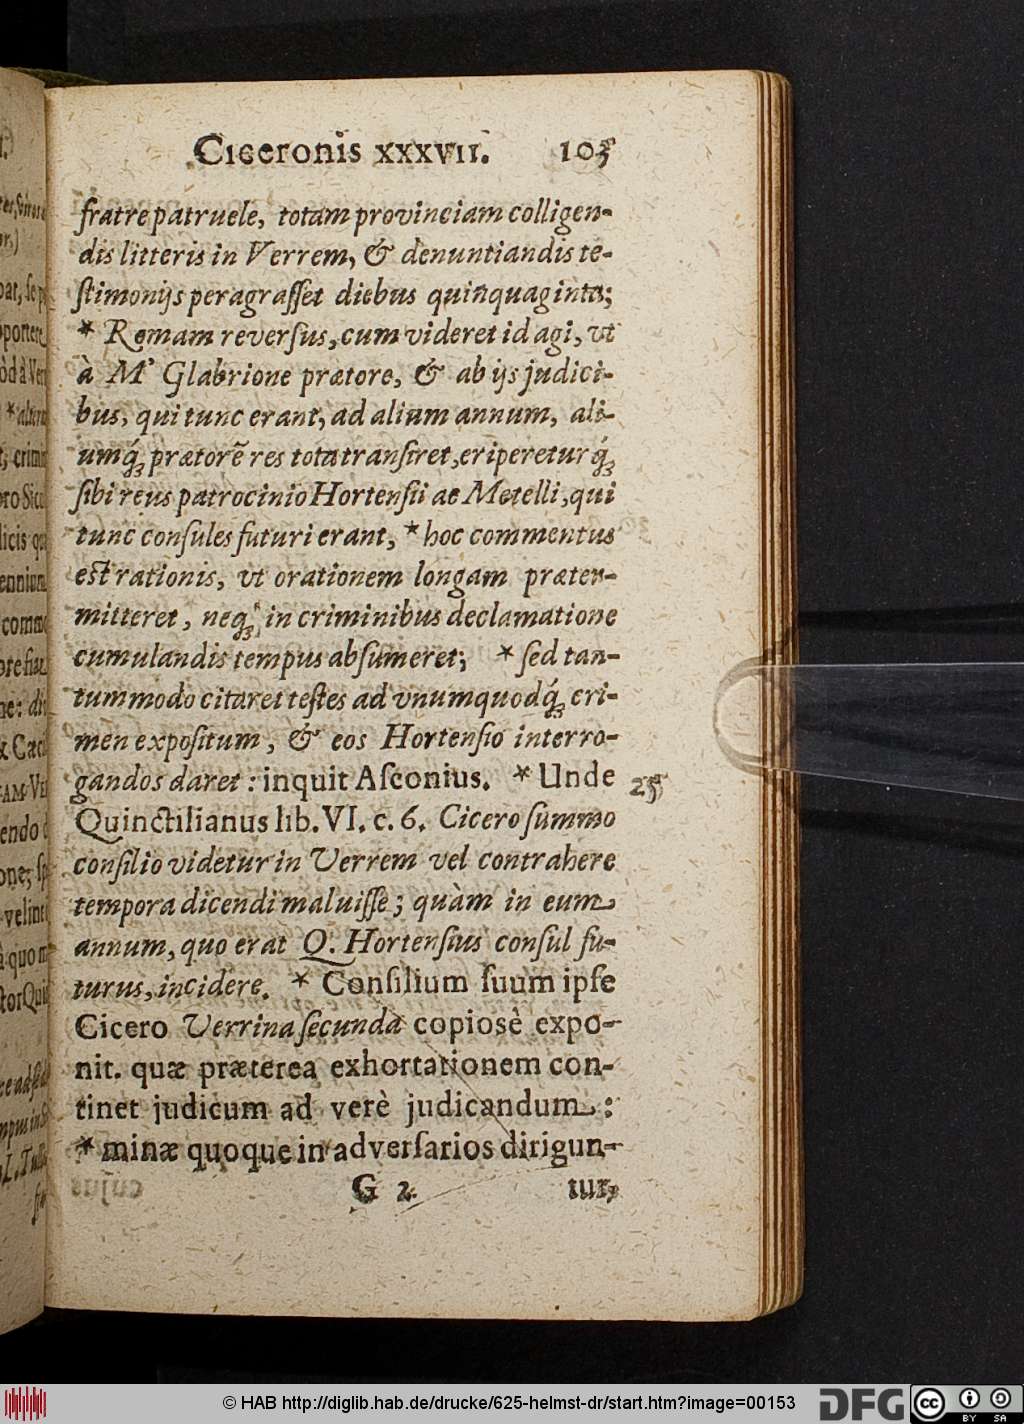 Ciceronis xxxvii. 105
fratre patruele, totam provinciam colligen-
dis litteris in Verrem, & denuntiandis te-
ſtimonijs peragraſſet diebus quinquaginta;
* Romam reverſus, cum videret id agi, vt
à M' Glabrione prætore, & ab ijs judici-
bus, qui tunc erant, ad alium annum, ali-
umq́ꝫ prætorẽ res tota tranſiret, eripereturq́ꝫ
ſibi reus patrocinio Hortenſii ac Metelli, qui
tunc conſules futuri erant, * hoc commentus
est rationis, vt orationem longam præter-
mitteret, neqꝫ in criminibus declamatione
cumulandis tempus abſumeret; * ſed tan-
tummodo citaret teſtes ad vnumquodq́ꝫ cri-
men expoſitum, & eos Hortenſio interro-
gandos daret: inquit Aſconius. * Unde 25
Quinctilianus lib. VI. c. 6. Cicero ſummo
conſilio videtur in Verrem vel contrahere
tempora dicendi maluiſſe; quàm in eum
annum, quo erat Q. Hortenſius conſul fu-
turus, incidere. * Conſilium ſuum ipſe
Cicero Verrina ſecunda copiosè expo-
nit. quæ præterea exhortationem con-
tinet judicum ad verè judicandum:
* minæ quoque in adverſarios dirigun-
G 2 tur,
© HAB http://diglib.hab.de/drucke/625-helmst-dr/start.htm?image=00153
DFG
cc
BY SA